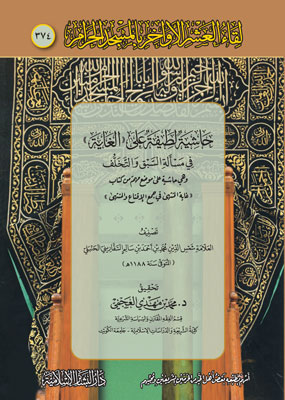 لقاء العشر الأواخر بالمسجد الحرام
٣٧٤
حاشية لطيفة على «الغاية»
في مسألة السبق والتخلف
وهي حاشية على موضع مهم من كتاب
«غاية المنتهى في جمع الإقناع والمنتهى»
تصنيف
العلامة شمس الدين محمد بن أحمد بن سالم السفاريني الحنبلي
(المتوفى سنة ١١٨٨هـ)
تحقيق
د. محمد بن مهدي العجمي
قسم الفقه المقارن والسياسة الشرعية
كلية الشريعة والدراسات الإسلامية - جامعة الكويت
أسهم بطبعه بعض أهل الخير من الحرمين الشريفين ومحبيهم
دار البشائر الإسلامية